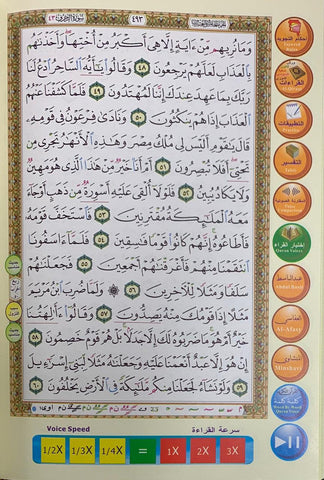 سورة الزخرف ٤٣
٤٩٣
وَمَا نُرِيهِم مِّنْ ءَايَةٍ إِلَّا هِىَ أَكْبَرُ مِنْ أُخْتِهَا وَأَخَذْنَٰهُم
بِٱلْعَذَابِ لَعَلَّهُمْ يَرْجِعُونَ ٤٨ وَقَالُوا۟ يَٰٓأَيُّهَ ٱلسَّاحِرُ ٱدْعُ لَنَا
رَبَّكَ بِمَا عَهِدَ عِندَكَ إِنَّنَا لَمُهْتَدُونَ ٤٩ فَلَمَّا كَشَفْنَا عَنْهُمُ
ٱلْعَذَابَ إِذَا هُمْ يَنكُثُونَ ٥٠ وَنَادَىٰ فِرْعَوْنُ فِى قَوْمِهِۦ
قَالَ يَٰقَوْمِ أَلَيْسَ لِى مُلْكُ مِصْرَ وَهَٰذِهِ ٱلْأَنْهَٰرُ تَجْرِى مِن
تَحْتِىٓ أَفَلَا تُبْصِرُونَ ٥١ أَمْ أَنَا۠ خَيْرٌ مِّنْ هَٰذَا ٱلَّذِى هُوَ مَهِينٌ
وَلَا يَكَادُ يُبِينُ ٥٢ فَلَوْلَآ أُلْقِىَ عَلَيْهِ أَسْوِرَةٌ مِّن ذَهَبٍ أَوْ جَآءَ
مَعَهُ ٱلْمَلَٰٓئِكَةُ مُقْتَرِنِينَ ٥٣ فَٱسْتَخَفَّ قَوْمَهُۥ
فَأَطَاعُوهُ إِنَّهُمْ كَانُوا۟ قَوْمًا فَٰسِقِينَ ٥٤ فَلَمَّآ ءَاسَفُونَا
ٱنتَقَمْنَا مِنْهُمْ فَأَغْرَقْنَٰهُمْ أَجْمَعِينَ ٥٥ فَجَعَلْنَٰهُمْ
سَلَفًا وَمَثَلًا لِّلْءَاخِرِينَ ٥٦ وَلَمَّا ضُرِبَ ٱبْنُ مَرْيَمَ
مَثَلًا إِذَا قَوْمُكَ مِنْهُ يَصِدُّونَ ٥٧ وَقَالُوٓا۟ ءَأَٰلِهَتُنَا
خَيْرٌ أَمْ هُوَ مَا ضَرَبُوهُ لَكَ إِلَّا جَدَلًۢا بَلْ هُمْ قَوْمٌ خَصِمُونَ ٥٨
إِنْ هُوَ إِلَّا عَبْدٌ أَنْعَمْنَا عَلَيْهِ وَجَعَلْنَٰهُ مَثَلًا لِّبَنِىٓ إِسْرَٰٓءِيلَ ٥٩
وَلَوْ نَشَآءُ لَجَعَلْنَا مِنكُم مَّلَٰٓئِكَةً فِى ٱلْأَرْضِ يَخْلُفُونَ ٦٠
أحكام التجويد
Tajweed Rules
القراءات
التطبيقات
التفسير
Tafseer
مقارنة صوتية
Voice Comparison
إختيار القراء
Quran Voices
عبد الباسط
Abdul Basit
العفاسي
Al-Afasy
المنشاوي
Minshawi
كلمة كلمة
Word By Word
Quran Voice
Voice Speed
سرعة القراءة
1/2X 1/3X 1/4X = 1X 2X 3X